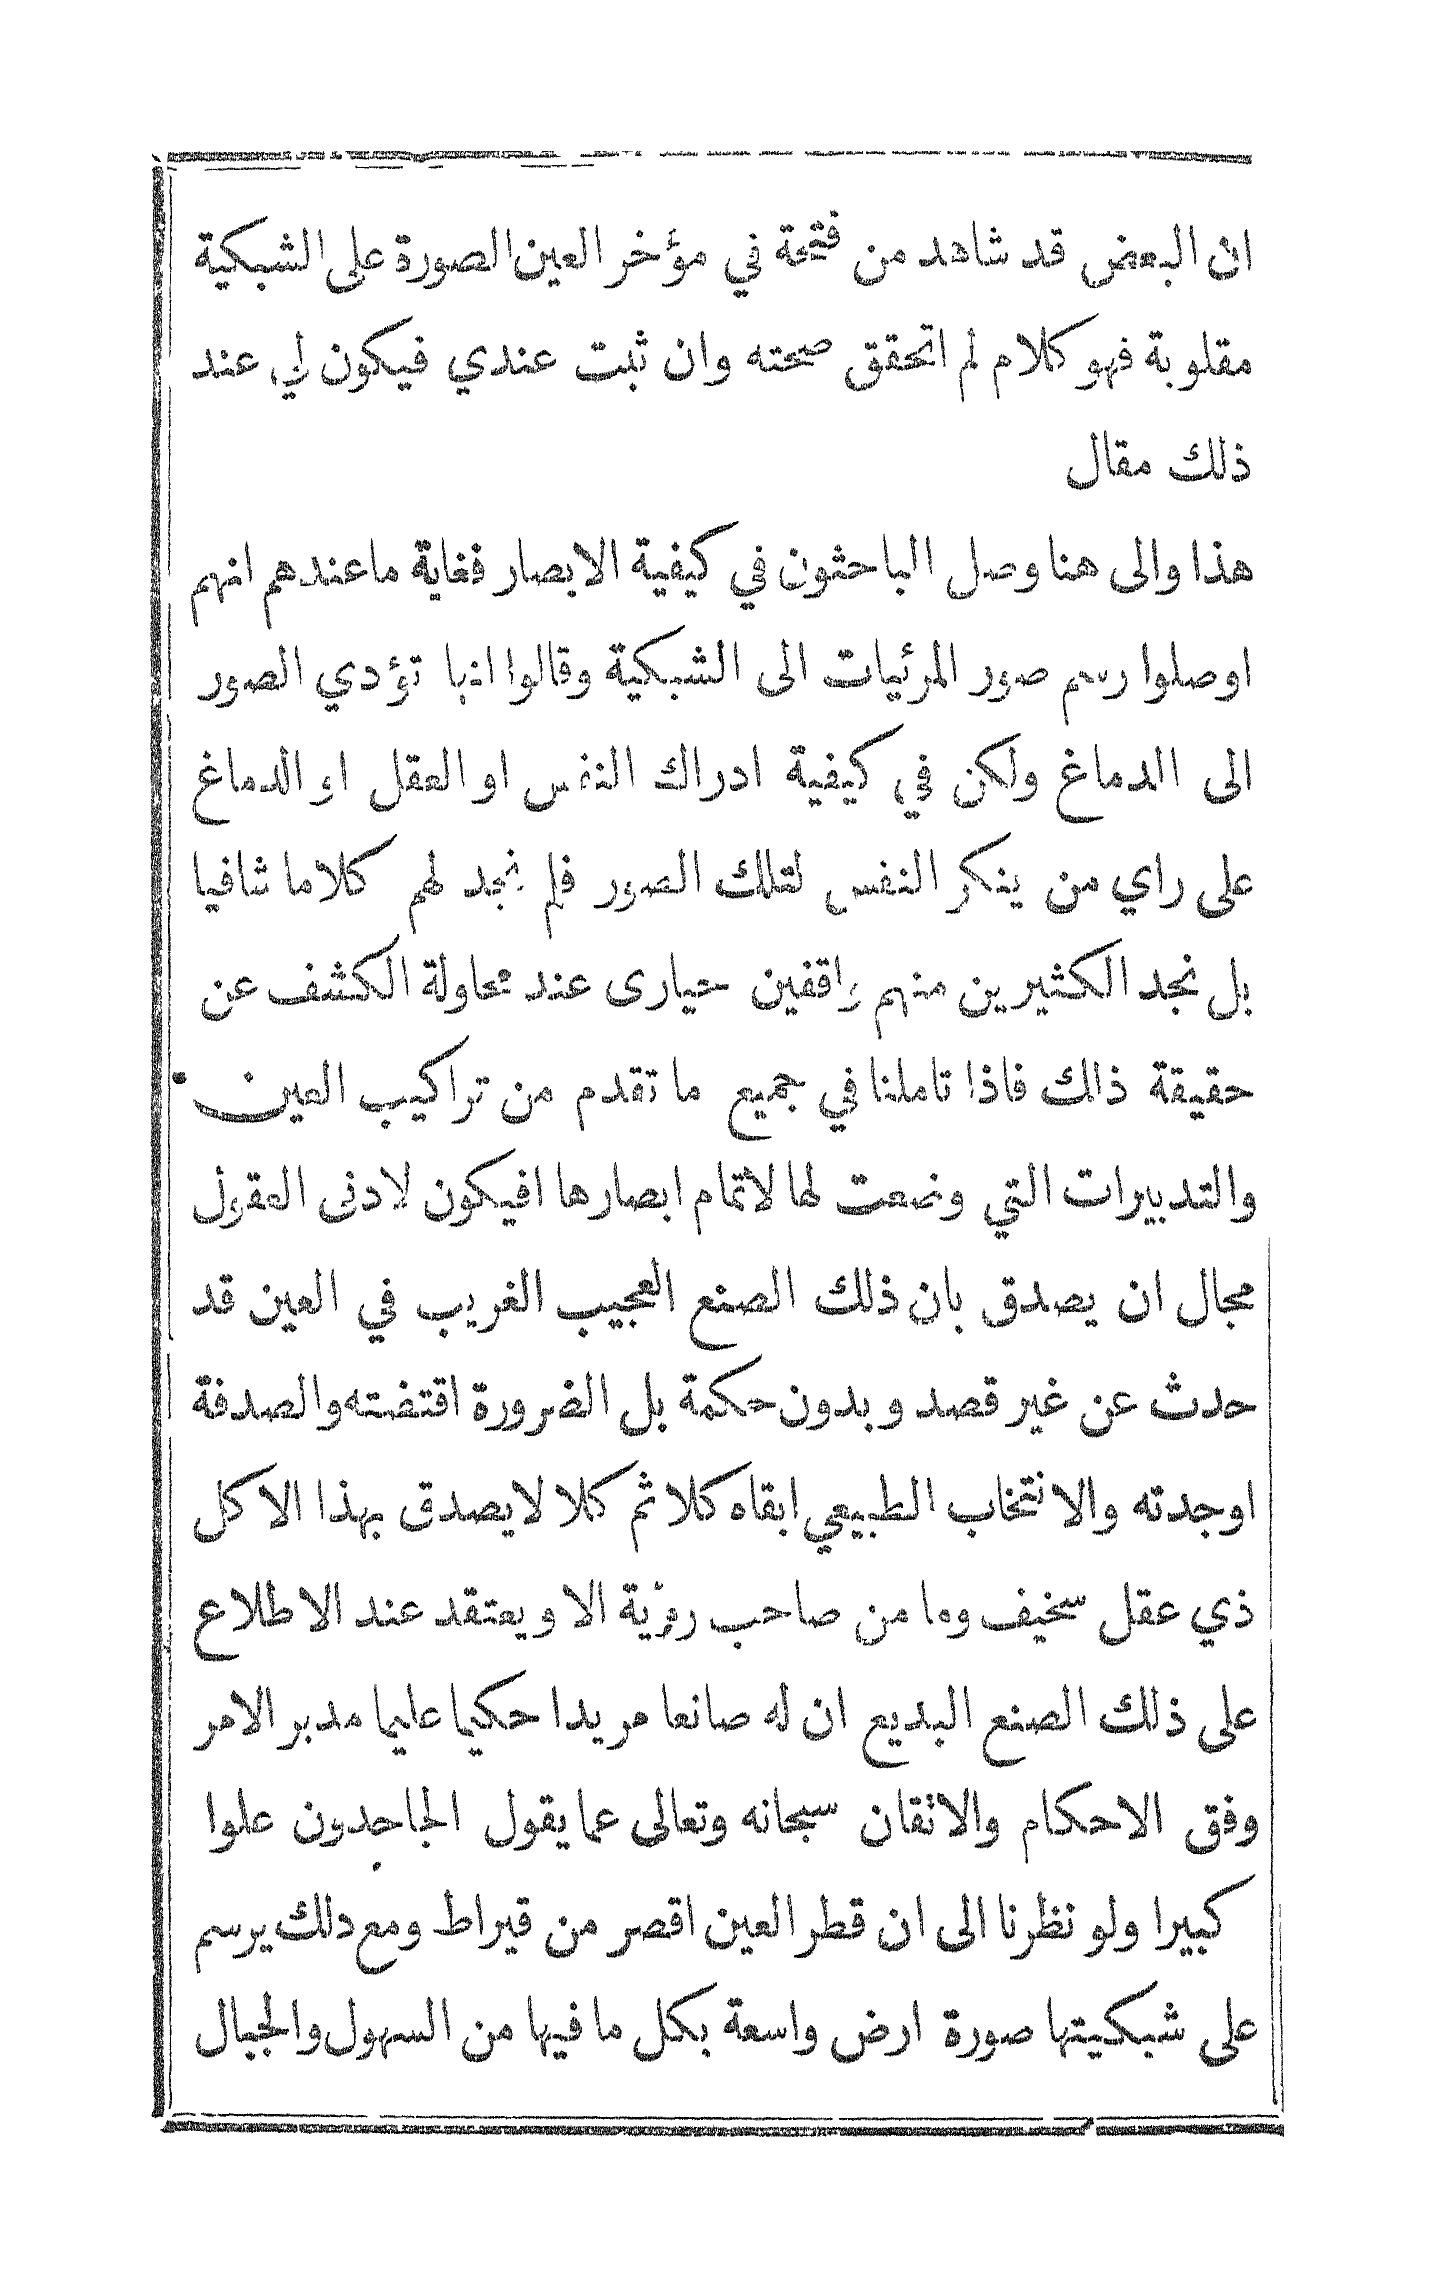 ان البعض قد شاهد من فتحة في مؤخر العين الصورة على الشبكية
مقلوبة فهو كلام لم اتحقق صحته وان ثبت عندي فيكون لي عند
ذلك مقال
هذا والى هنا وصل الباحثون في كيفية الابصار فغاية ما عندهم انهم
اوصلوا رسم صور المرئيات الى الشبكية وقالوا انها تؤدي الصور
الى الدماغ ولكن في كيفية ادراك النفس او العقل او الدماغ
على راي من ينكر النفس لتلك الصور فلم نجد لهم كلاما شافيا
بل نجد الكثيرين منهم واقفين حيارى عند محاولة الكشف عن
حقيقة ذلك فاذا تاملنا في جميع ما تقدم من تراكيب العين
والتدبيرات التي وضعت لها لاتمام ابصارها افيكون لادنى العقول
مجال ان يصدق بان ذلك الصنع العجيب الغريب في العين قد
حدث عن غير قصد وبدون حكمة بل الضرورة اقتضته والصدفة
اوجدته والانتخاب الطبيعي ابقاه كلا ثم كلا لا يصدق بهذا الا كل
ذي عقل سخيف وما من صاحب رؤية الا ويعتقد عند الاطلاع
على ذلك الصنع البديع ان له صانعا مريدا حكيما عليما مدبر الامر
وفق الاحكام والاتقان سبحانه وتعالى عما يقول الجاحدون علوا
كبيرا ولو نظرنا الى ان قطر العين اقصر من قيراط ومع ذلك يرسم
على شبكيتها صورة ارض واسعة بكل ما فيها من السهول والجبال